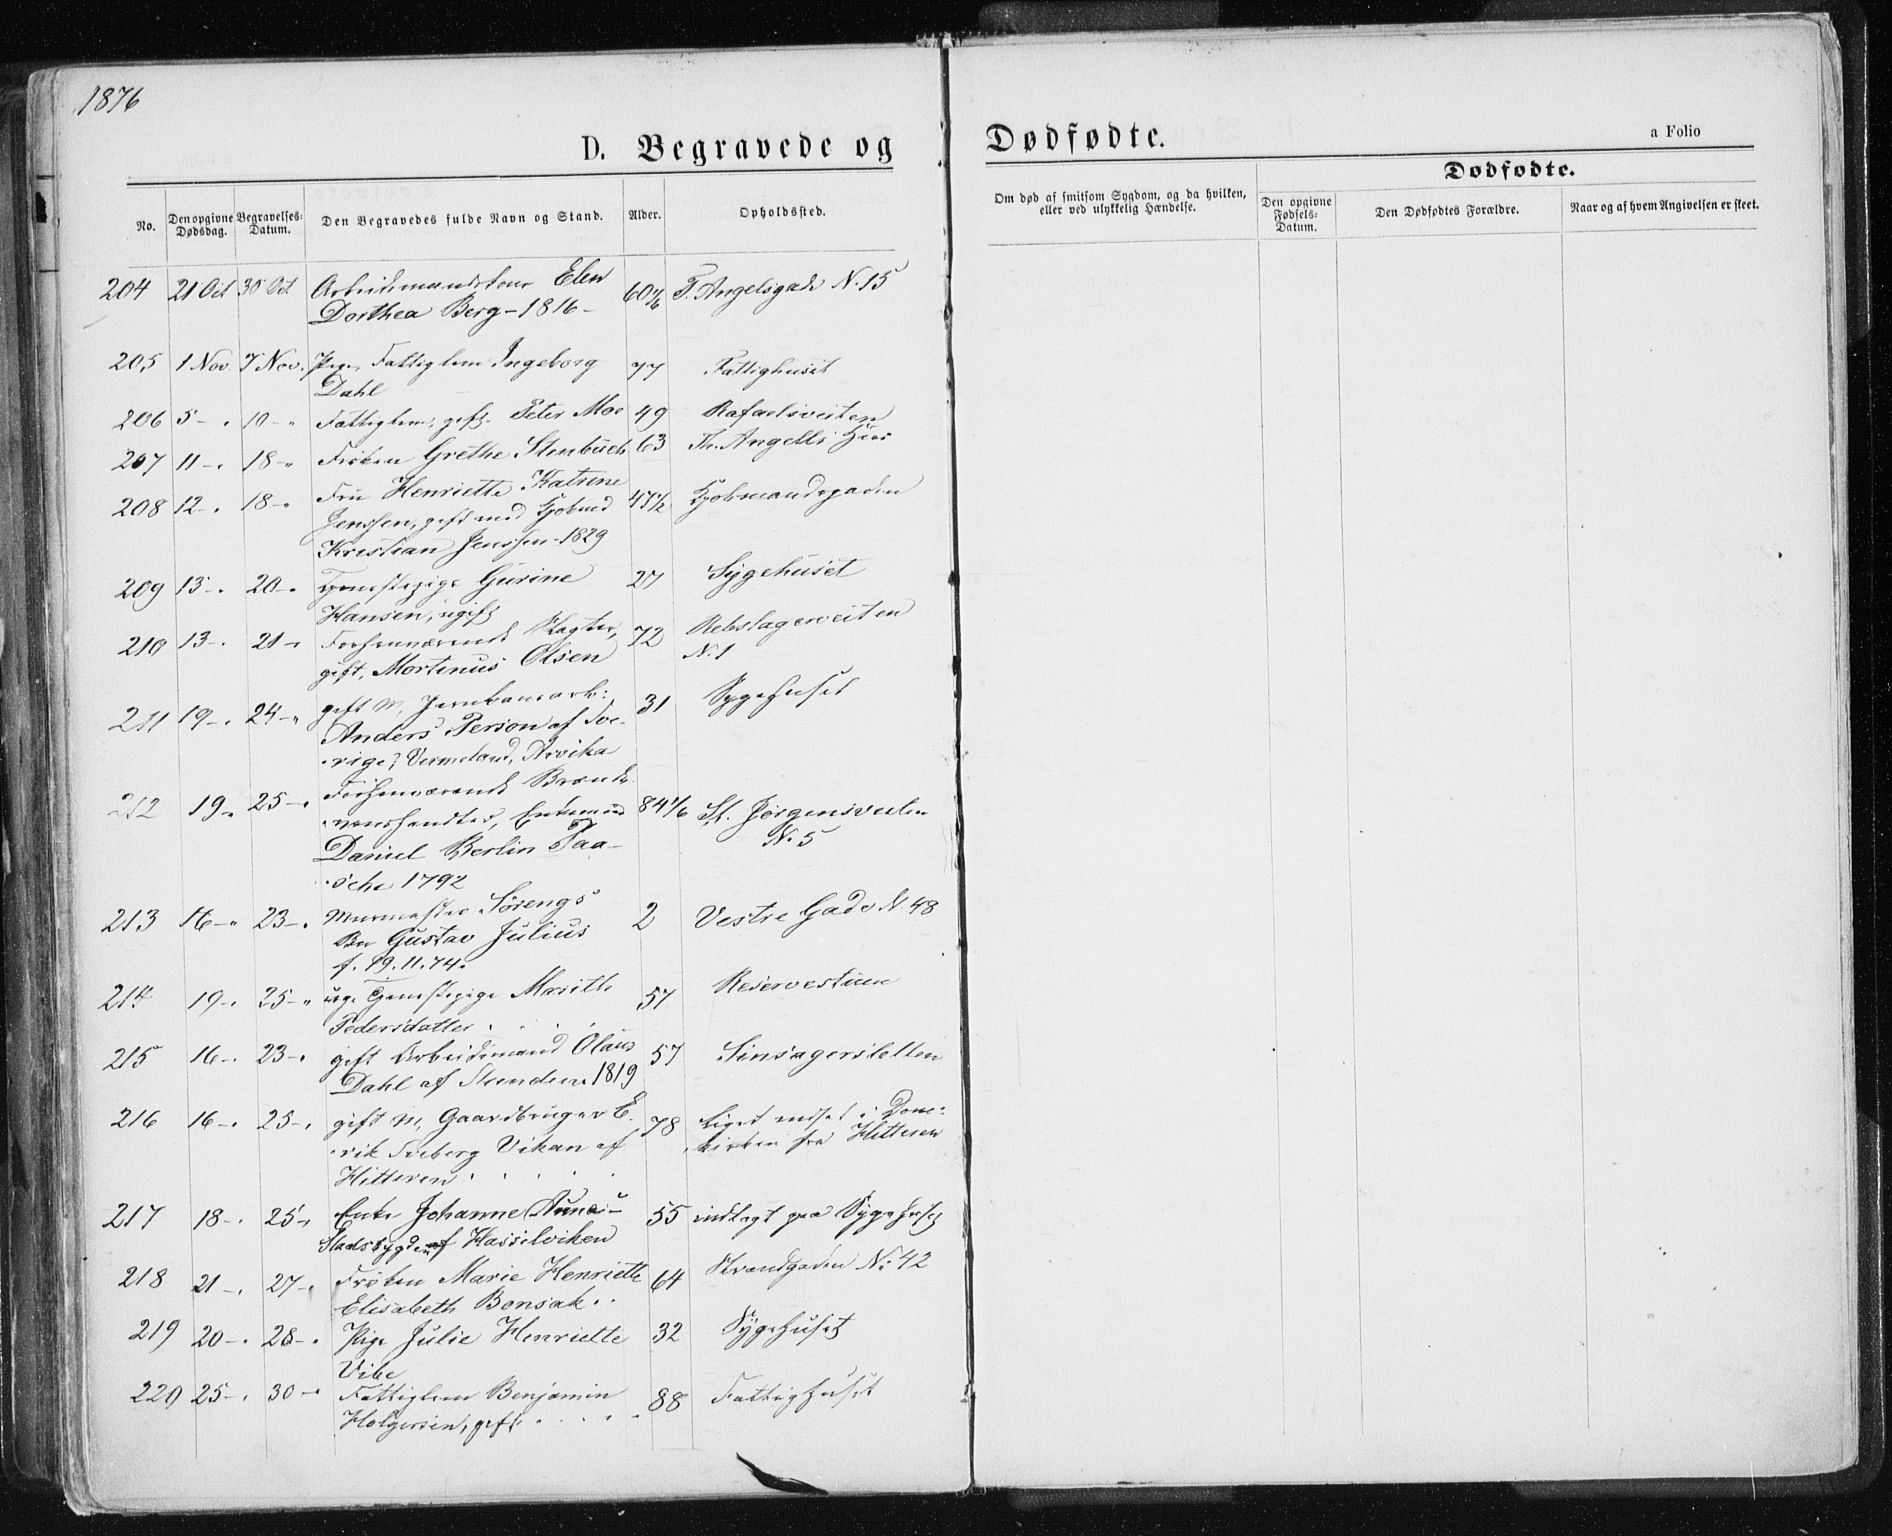 1876
D. Begravede og Dødfødte.
a Folio
No.
Den opgivne Dødsdag.
Begravelses-Datum.
Den Begravedes fulde Navn og Stand.
Alder.
Opholdssted.
Om død af smitsom Sygdom, og da hvilken, eller ved ulykkelig Hændelse.
Dødfødte.
Den opgivne Fødsels-Datum.
Den Dødfødtes Forældre.
Naar og af hvem Angivelsen er skeet.
204 21 Oct 30 Oct Arbeidsmandskone Elen 60 1/6 T. Angelsgade N. 15
Dorthea Berg - 1816 -
205 1 Nov 7 Nov. Pige, Fattiglem Ingeborg 77 Fattighuset
Dahl
206 5 - " 10 - " Fattiglem, gift Peter Moe 49 Rafaelsveiten
207 11 - " 18 - " Frøken Grethe Stenbuch 63 Th. Angells Hus
208 12 - " 18 - " Fru Henriette Katrine 47 1/2 Kjøbmandsgaden
Jenssen, gift med Kjøbmd
Kristian Jenssen - 1829
209 13 - " 20 - " Tjenestepige Gurine 27 Sygehuset
Hansen, ugift
210 13 - " 21 - " Forhenværende Slagter, 72 Rebslagerveiten
gift, Mortinus Olsen N. 1
211 19 - " 24 - " gift M, Jernbanearb: 31 Sygehuset
Anders Person af Sve-
rige, Vermeland, Arvika
212 19 - " 25 - " Forhenværende Brænde- 84 1/6 St. Jørgensveiten
Enkemand N. 5
Daniel Berlin Paa-
sche 1792
213 16 - " 23 - " Murmester Sørengs 2 Vestre Gade N. 48
Bn Gustav Julius
f. 19.11.74.
214 19 - " 25 - " uge Tjenestepige Marith 57 Reservestuen
Pedersdatter
215 16 - " 23 - " gift Arbeidsmand Olaus 57 Sinsagersletten
Dahl af Stranden 1819
216 16 - " 25 - " gift M, Gaardbruger E- 78 Liget indsat i Dom-
rik Freberg Vikan af kirken fra Hitteren
Hitteren
217 18 - " 25 - " Enke Johanne Anna 55 indlagt paa Sygehuset
Stadsbygden af Hasselviken
218 21 - " 27 - " Frøken Marie Henriette 64 Strandgaden N: 42
Elisabeth Bonsak
219 20 - " 28 - " Pige Julie Henriette 32 Sygehuset
Vibe
220 25 - " 30 - " Fattiglem Benjamin 88 Fattighuset
Holgersen, gift